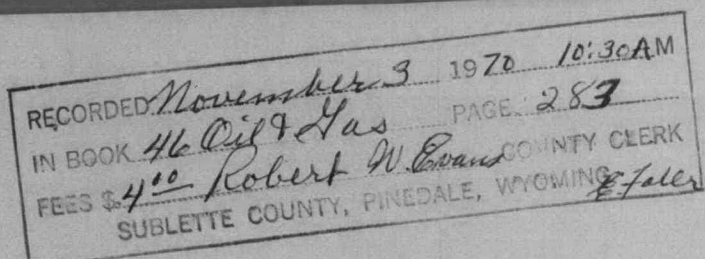 RECORDED November 3 1970 10:30 A.M
IN BOOK 46 Oil & Gas PAGE 283
FEES $ 4.00 Robert W. Evans COUNTY CLERK
SUBLETTE COUNTY, PINEDALE, WYOMING